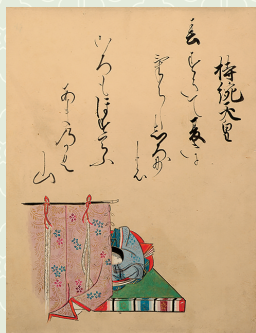 持統天皇
春すきて夏き
にけらし白妙
の
ころもほすてふ
あまのかく
山